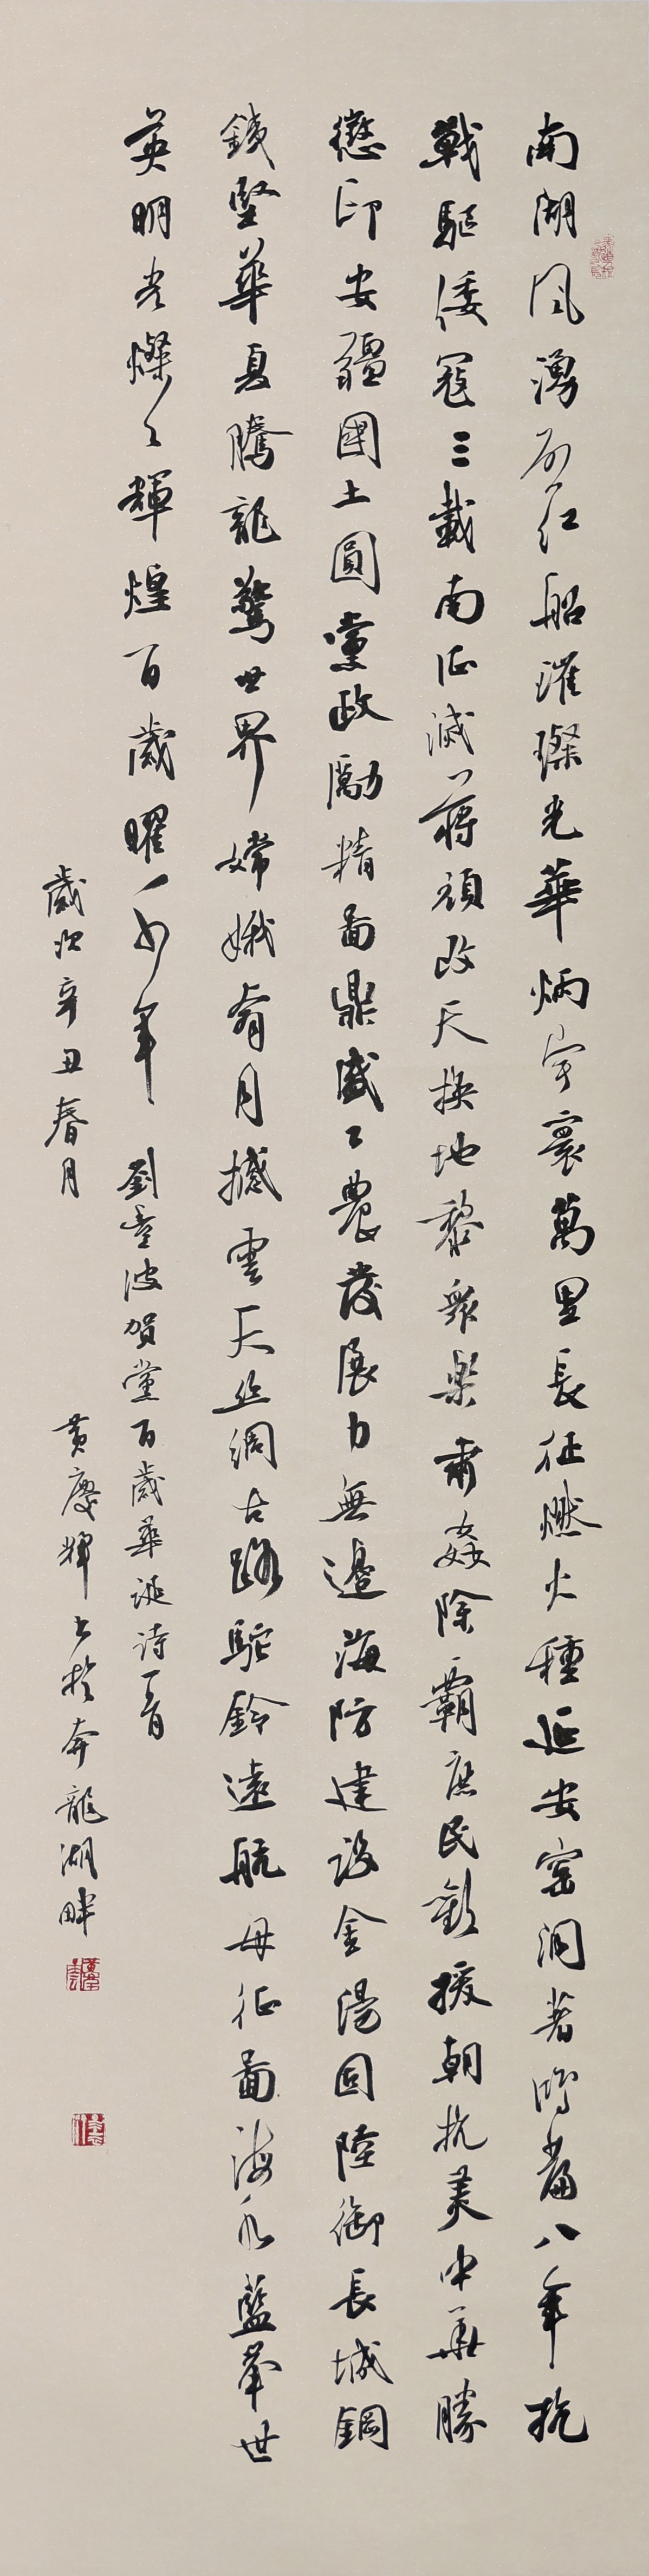 南湖風湧引紅船璀璨光華炳宇寰萬里長征燃火種延安窰洞著鴻篇八年抗
戰驅倭寇三載南征滅蔣頑改天換地黎衆樂肅姦除霸庶民歡援朝抗美中華勝
懲印安疆國土圓黨政勵精圖鼎盛工農發展力無邊海防建設金湯固陸御長城鋼
鐵堅華夏騰龍驚世界嫦娥奔月撼雲天絲綢古路駝鈴遠航母征圖海水藍舉世
英明光燦燦輝煌百歲曜少年 劉 波賀黨百歲華誕诗一首
歲次辛丑春月 黄慶輝書於奔龍湖畔